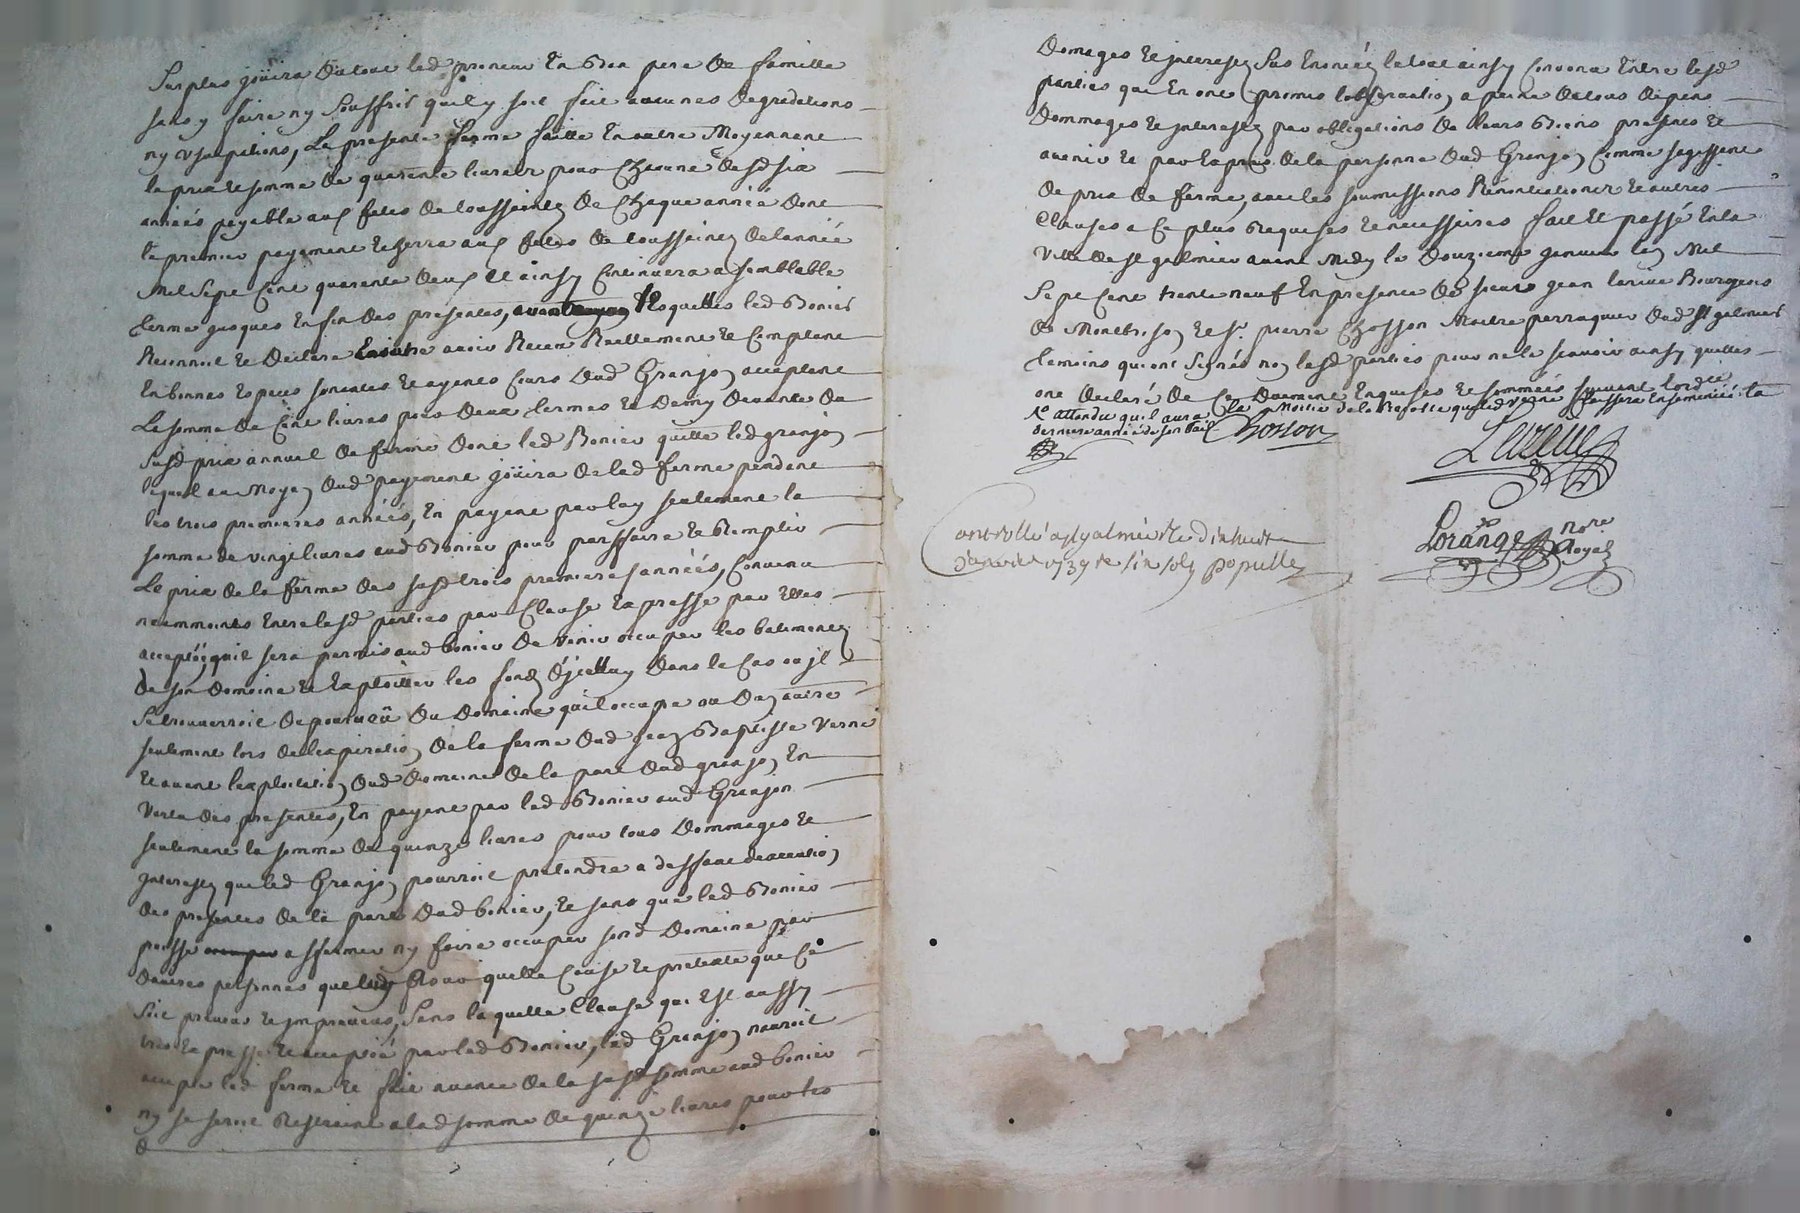 Surplus joüira du tout led preneur En Bon pere de famille
sans y faire ny Souffrir quil y soit fait aucunes degradations
ny usurpations, La presente ferme faitte En outre Moyennant
le prix et somme de quarante livres pour Chacune desd six
années payable aux fetes de toussaintz de Chaque année dont
le premier payement Eschera aux fetes de toussaintz delannée
Mil Sept Cent quarente deux Et ainsy Continuera a semblable
terme jusques En fin des presentes, Lesquelles led Bonier
Reconnoit et Declare avoir Receu Reellement Et Comptant
En bonnes Especes sonentes et ayents Cours Dud Granjon acceptant
La somme de Cent livres pour deux termes et Demy davance du
susd prix annuel de ferme dont led Bonier quitte led granjon
lequel au Moyen dud payement joüira de lad ferme pendent
les trois premieres années, En payent par luy seulement la
somme de vingt livres aud Bonier pour parffaire et Remplir
Le prix de la ferme des susd trois premieres années, Convenu
neammoints Entre lesd parties par Clause Expresse par Elles
acceptée, quil sera permis aud bonier de venir occuper les batimentz
de son domaine et Exploitter les fondz d'jcelluy dans le Cas ou jl
se trouverroit depourveü du Domaine quil occupe ou Dun autre
seulement lors de lexpiration de la ferme dud jean Baptiste Verne
Et avant lexploitation dud domaine de la part dud granjon En
Vertu des presentes, En payent par led Bonier aud Granjon
seulement la somme de quinze livres pour tous Dommages et
jnterestz que led Granjon pourroit pretendre a deffaut dexecution
des presentes de la part Dud bonier, Et sans que led Bonier
puisse affermer ny faire occuper sond Domaine par
dautres personnes que luy pour quelle Cause et pretexte que Ce
soit preveu et jmpreveus, Sans laquelle Clause qui Est aussy
tres Expresse et acceptée par led Bonier, led Granjon nauroit
accepté lad ferme et fait avance de la susd somme aud bonier
ny se seroit Restreint a lad somme de quinze livres pour tes
Domages et jnterestz sus Enoncéz le tout ainsy Convenu Entre lesd
parties qui En ont promis lobservation a peine de tous depens
Dommages et jnterestz par obligations de leurs Biens presents et
avenir et par Exprès de la personne dud Granjon Comme sagissant
de prix de ferme, avec les soumissions Renonciations et autres
Clauses a Ce plus Requises et necessaires fait et passé En la
Ville de st galmier avant Midy le Douzieme janvier lan Mil
Sept Cent trente neuf En presence de sieur jean Bourgeois
de Montbrison et sr. pierre Chosson Maitre perruquier dud st galmier
temoins qui ont Signés non lesd parties pour ne le scavoir ainsy quelles
ont declaré de Ce Duement Enquises et sommées suivant lordce
attendu quil aura la Moitié de la Recolte que led verne laissera Ensemencée la
derniere année de son bail Chosson
Lorange nore
Royal
Controllé a st galmier le dixhuit
janvier 1739 Re six sols populle